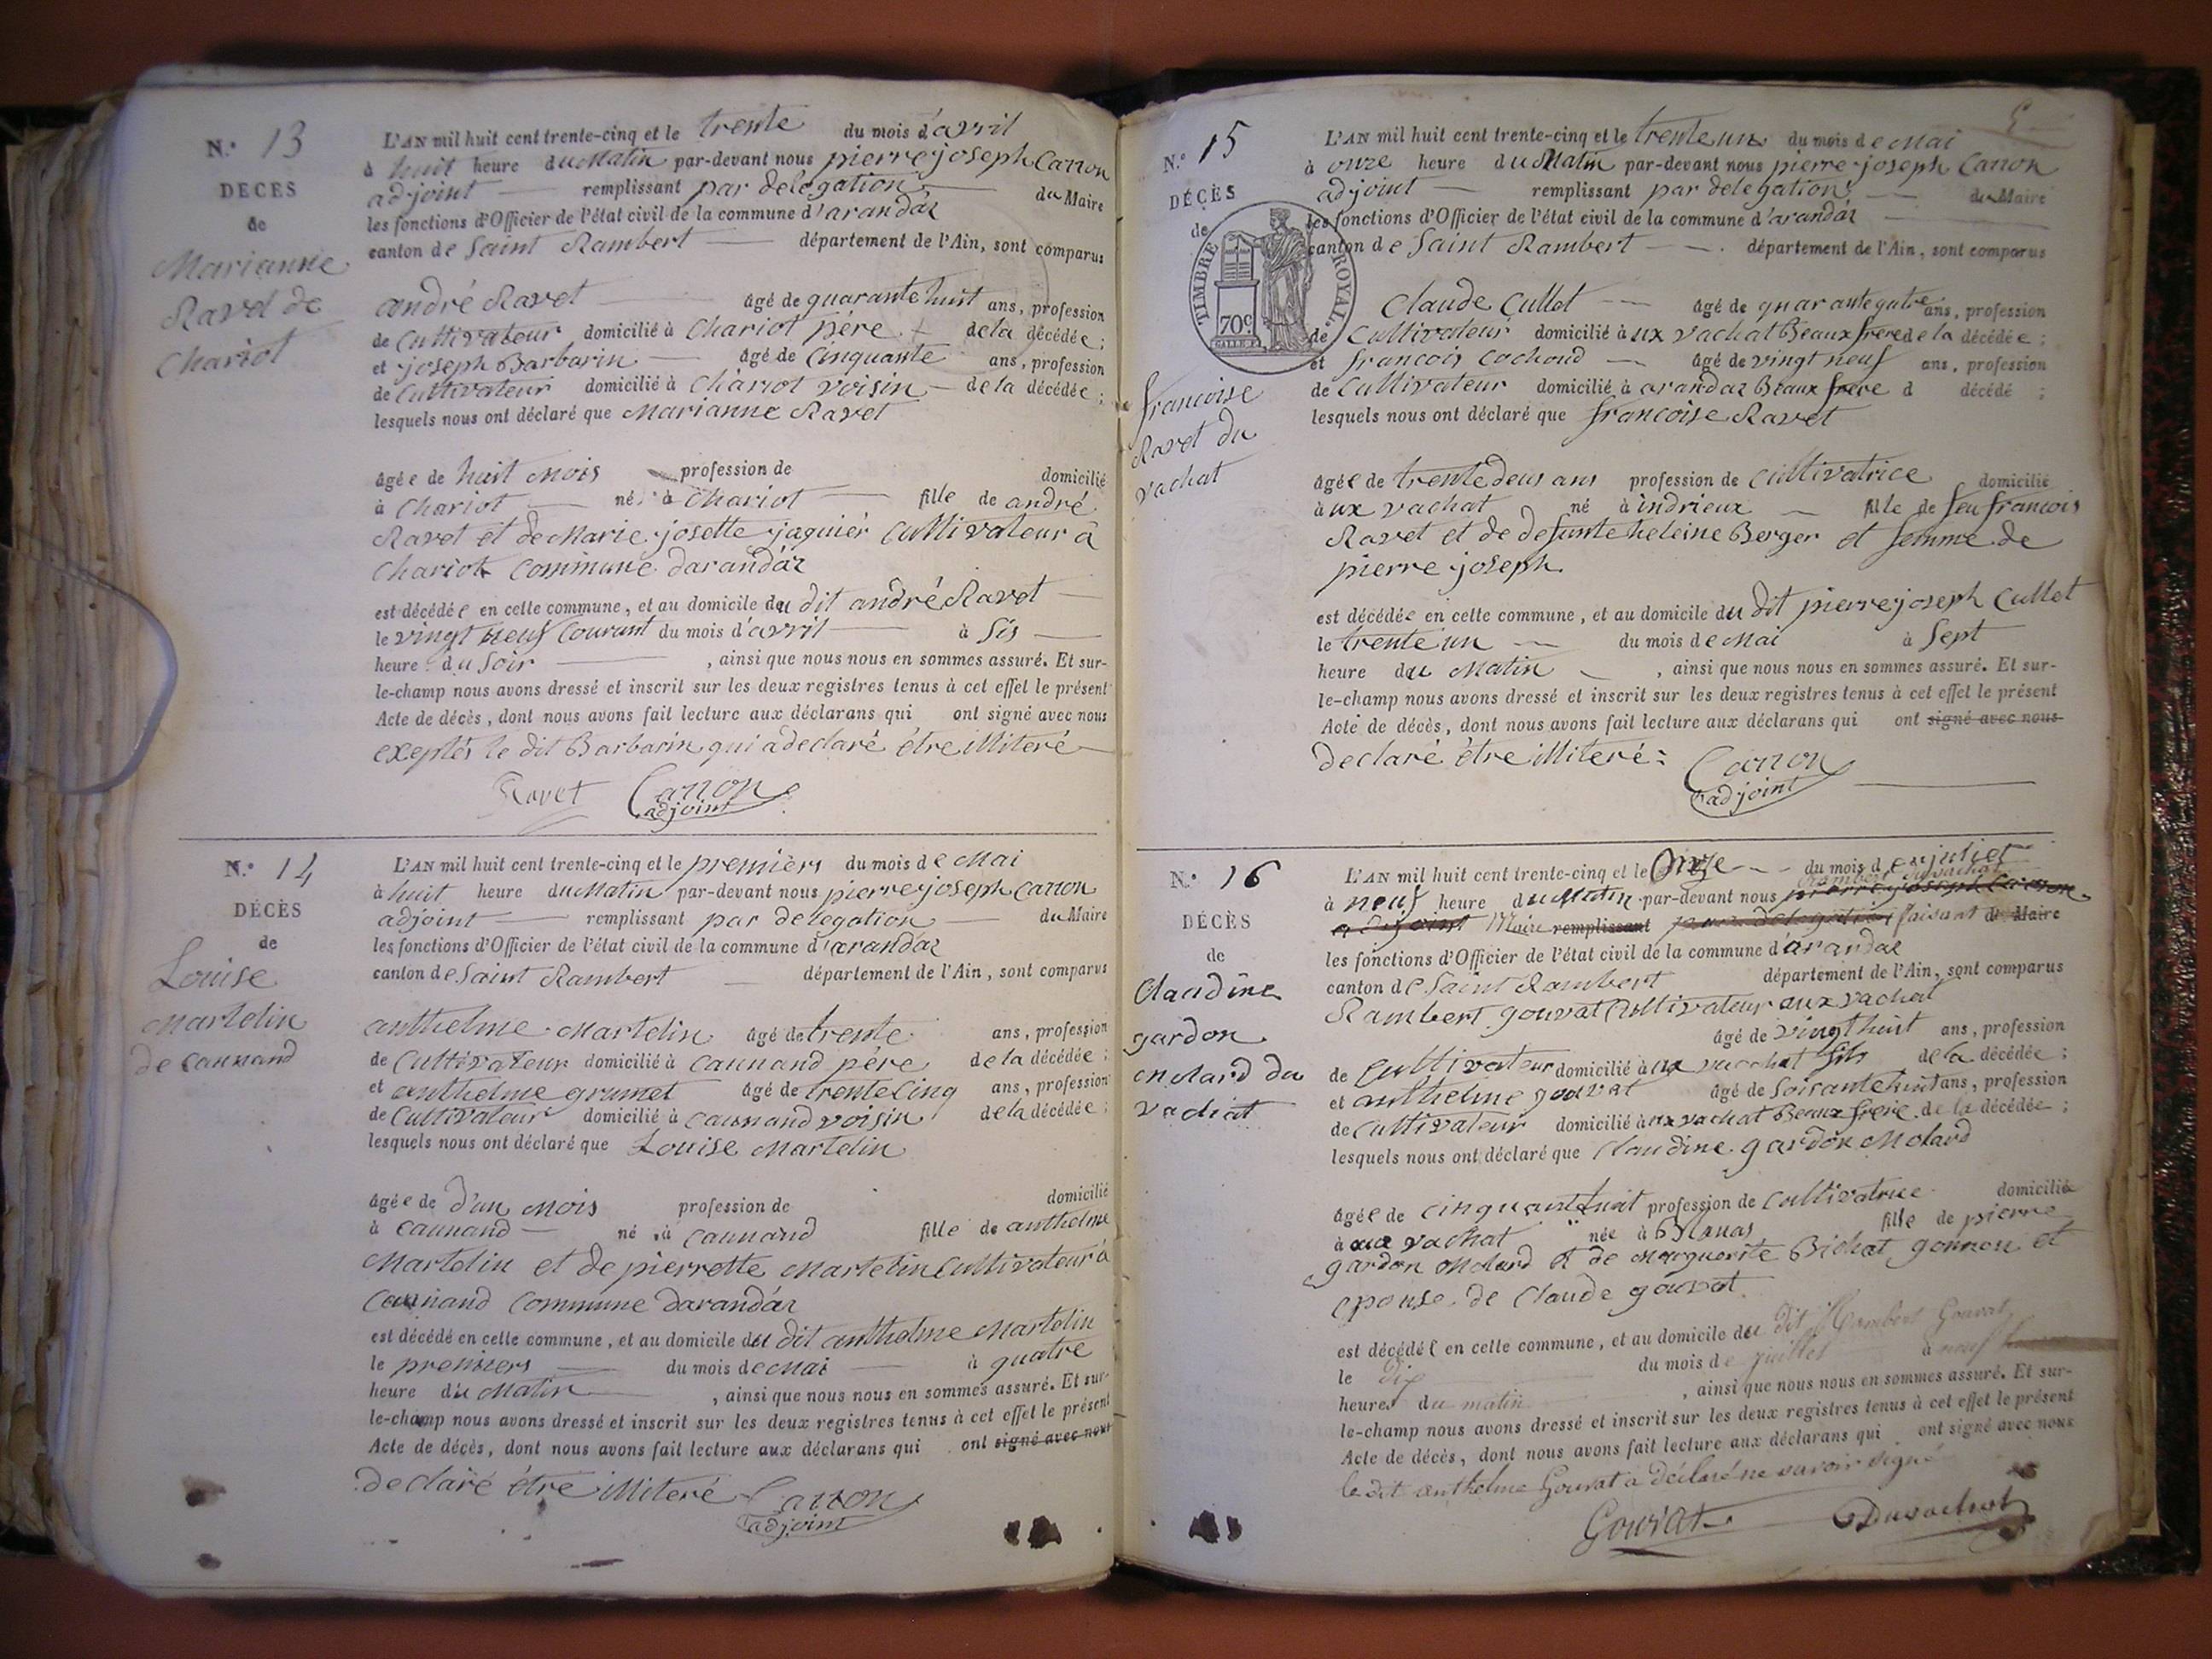 N.° 13
DECES
de
Marianne
Ravet de
Chariot
L'AN mil huit cent trente-cinq et le trente du mois d'avril
à huit heure du Matin par-devant nous pierre joseph Carron
adjoint remplissant par delegation du Maire
les fonctions d'Officier de l'état civil de la commune d'arandaz
canton de Saint Rambert département de l'Ain, sont comparus
andré Ravet âgé de quarante huit ans, profession
de Cultivateur domicilié à Chariot père de la décédée;
et joseph Barbarin âgé de Cinquante ans, profession
de Cultivateur domicilié à Chariot voisin de la décédée;
lesquels nous ont déclaré que Marianne Ravet
âgée de huit mois profession de domicilié
à Chariot né à Chariot fille de andré
Ravet et de Marie josette jaquier Cultivateur à
Chariot Commune darandaz
est décédée en cette commune, et au domicile du dit andré Ravet
le vingt neuf Courant du mois d'avril à Sis
heure du Soir, ainsi que nous nous en sommes assuré. Et sur-
le-champ nous avons dressé et inscrit sur les deux registres tenus à cet effet le présent
Acte de décès, dont nous avons fait lecture aux déclarans qui ont signé avec nous
exeptés le dit Barbarin qui a declaré être illiteré
Ravet Carron
adjoint
N.° 14
DÉCÈS
de
Louise
Martelin
de Caunand
L'AN mil huit cent trente-cinq et le premiers du mois de Mai
à huit heure du Matin par-devant nous pierre joseph Carron
adjoint remplissant par delegation du Maire
les fonctions d'Officier de l'état civil de la commune d'arandaz
canton de Saint Rambert département de l'Ain, sont comparus
anthelme Martelin âgé de trente ans, profession
de Cultivateur domicilié à Caunand père de la décédée;
et anthelme grumet âgé de trente Cinq ans, profession
de Cultivateur domicilié à Caunand voisin de la décédée;
lesquels nous ont déclaré que Louise Martelin
âgée de d'un mois profession de domicilié
à Caunand né à Caunand fille de anthelme
Martelin et de pierrette Martelin Cultivateur à
Caunand Commune darandaz
est décédé en cette commune, et au domicile du dit anthelme Martelin
le premiers du mois de Mai à quatre
heure du Matin, ainsi que nous nous en sommes assuré. Et sur-
le-champ nous avons dressé et inscrit sur les deux registres tenus à cet effet le présent
Acte de décès, dont nous avons fait lecture aux déclarans qui ont signé avec nous
declaré être illiteré Carron
adjoint
N.° 15
DÉCÈS
de
TIMBRE ROYAL
70c
francoise
Ravet du
vachat
L'AN mil huit cent trente-cinq et le trente un du mois de Mai
à onze heure du Matin par-devant nous pierre joseph Carron
adjoint remplissant par delegation du Maire
les fonctions d'Officier de l'état civil de la commune d'arandaz
canton de Saint Rambert département de l'Ain, sont comparus
Claude Cullet âgé de quarante quatre ans, profession
de Cultivateur domicilié à ux vachat Beaux frere de la décédée;
et francois Cochoud âgé de vingt neuf ans, profession
de Cultivateur domicilié à arandaz Beaux frere d décédé;
lesquels nous ont déclaré que francoise Ravet
âgée de trente deus ans profession de Cultivatrice domicilié
à ux vachat né à indrieux fille de feu francois
Ravet et de defunte heleine Berger et femme de
pierre joseph
est décédée en cette commune, et au domicile du dit pierre joseph Cullet
le trente un du mois de Mai à Sept
heure du Matin, ainsi que nous nous en sommes assuré. Et sur-
le-champ nous avons dressé et inscrit sur les deux registres tenus à cet effet le présent
Acte de décès, dont nous avons fait lecture aux déclarans qui ont signé avec nous
declaré être illiteré: Carron
adjoint
N.° 16
DÉCÈS
de
Claudine
gardon
molard du
vachat
L'AN mil huit cent trente-cinq et le Onze du mois de juliet
à neuf heure du Matin par-devant nous Rambert Duvachat pierre joseph Carron
adjoint Maire remplissant par delegation faisant du Maire
les fonctions d'Officier de l'état civil de la commune d'arandaz
canton de Saint Rambert département de l'Ain, sont comparus
Rambert gouvat Cultivateur aux vachat
âgé de vingt huit ans, profession
de Cultivateur domicilié à ux vachat fils de la décédée;
et anthelme gouvat âgé de Soisante huit ans, profession
de Cultivateur domicilié à ux vachat Beaux frere de la décédée;
lesquels nous ont déclaré que Claudine gardon Molard
âgée de cinquante huit profession de Cultivatrice domicilié
à aux vachat née à Blanas fille de pierre
gardon Molard et de Marguerite Bichat gonnon et
epouse de Claude gouvat
est décédée en cette commune, et au domicile du dit Rambert Gouvat
le dix du mois de juillet à neuf
heures du matin, ainsi que nous nous en sommes assuré. Et sur-
le-champ nous avons dressé et inscrit sur les deux registres tenus à cet effet le présent
Acte de décès, dont nous avons fait lecture aux déclarans qui ont signé avec nous
le dit anthelme Gouvat a déclaré ne savoir signé
Gouvat Duvachat